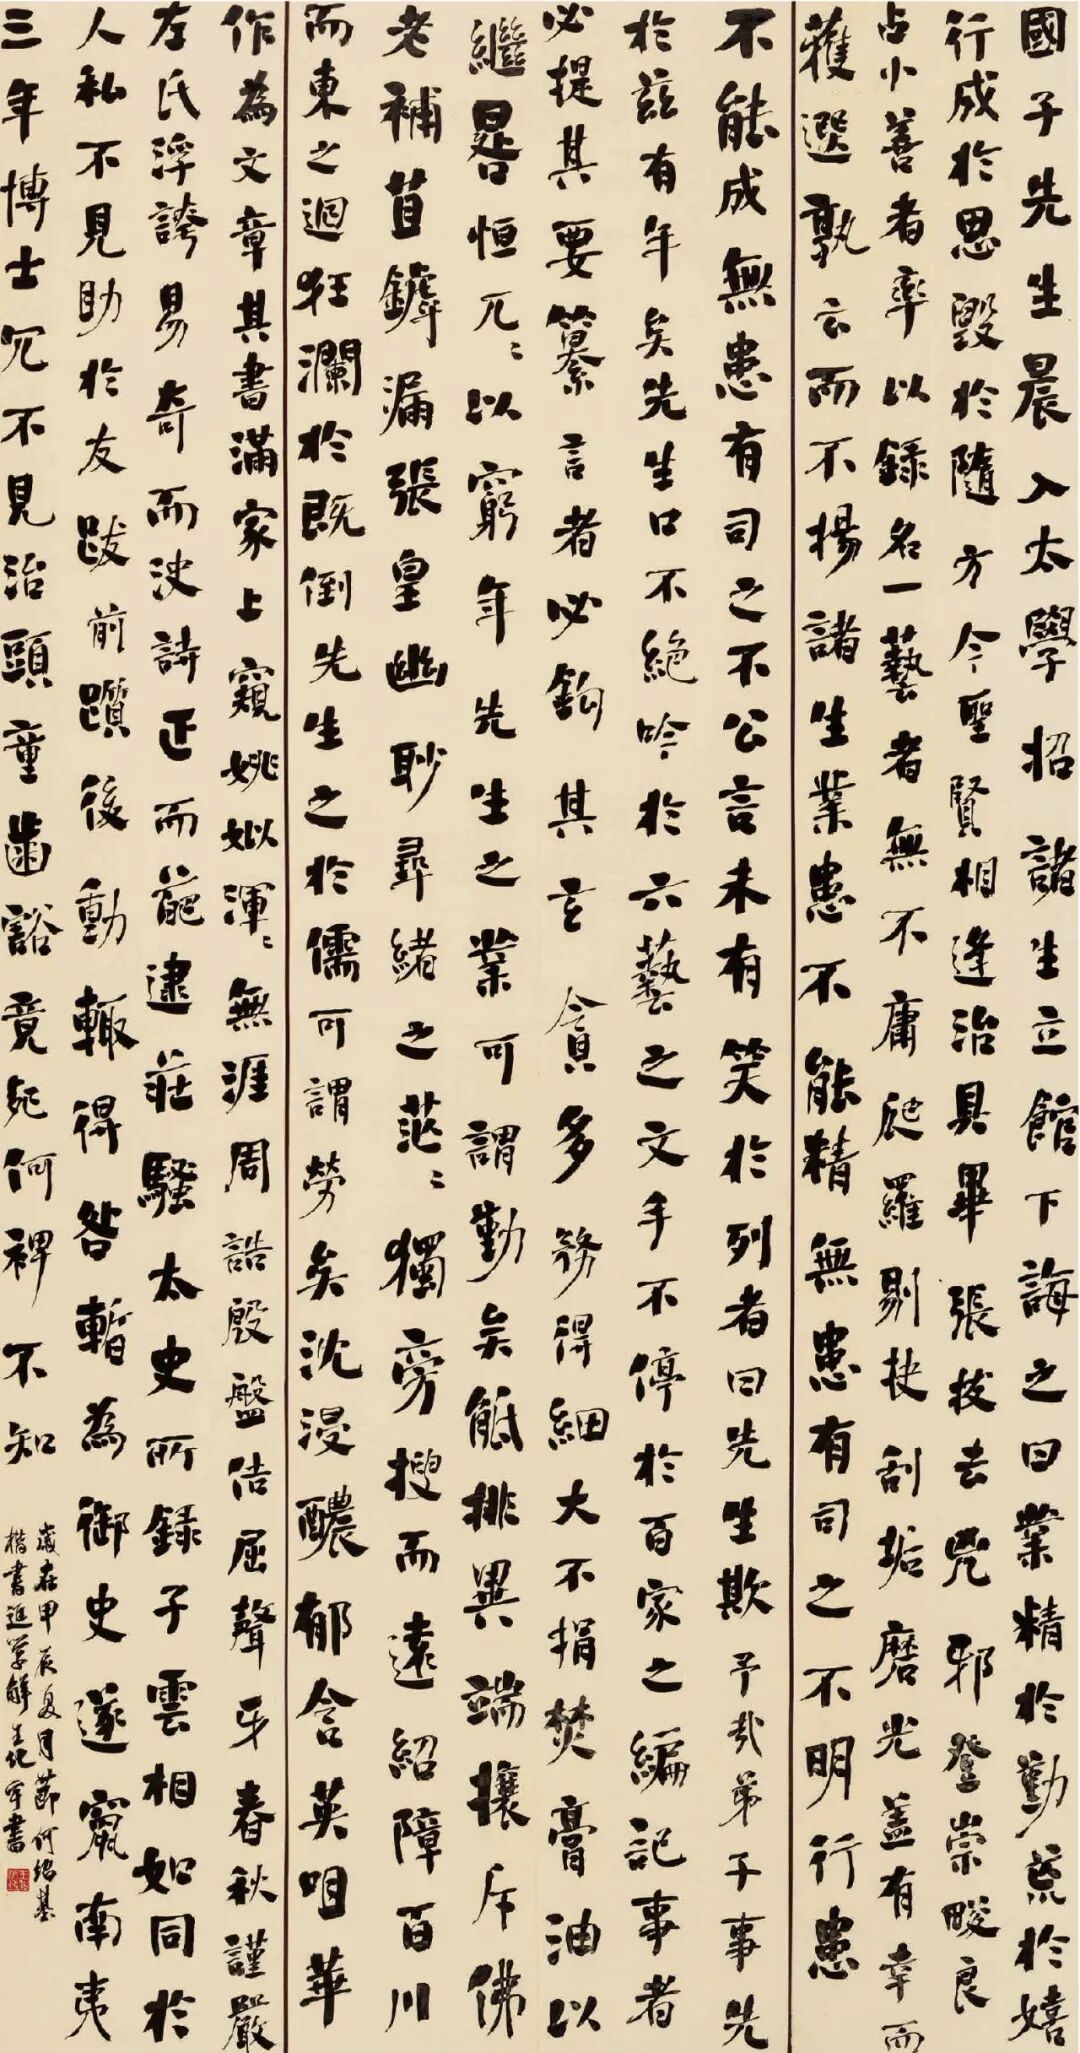 國子先生晨入太學招諸生立館下誨之曰業精於勤荒於嬉
行成於思毀於隨方今聖賢相逢治具畢張拔去兇邪登崇畯良
占小善者率以錄名一藝者無不庸爬羅剔抉刮垢磨光蓋有幸而
獲選孰云而不揚諸生業患不能精無患有司之不明行患
不能成無患有司之不公言未有笑於列者曰先生欺予哉弟子事先
於茲有年矣先生口不絕吟於六藝之文手不停於百家之編記事者
必提其要纂言者必鉤其玄貪多務得細大不捐焚膏油以
繼晷恒兀〻以窮年先生之業可謂勤矣觝排異端攘斥佛
老補苴罅漏張皇幽眇尋緒之茫〻獨旁搜而遠紹障百川
而東之迴狂瀾於既倒先生之於儒可謂勞矣沈浸醲郁含英咀華
作為文章其書滿家上窺姚姒渾〻無涯周誥殷盤佶屈聱牙春秋謹嚴
左氏浮誇易奇而法詩正而葩逮莊騷太史所錄子雲相如同於
人私不見助於友跋前躓後動輒得咎暫為御史遂竄南夷
三年博士冗不見治頭童齒豁竟死何裨不知
歲在甲辰夏月節何紹基
楷書進學解王書